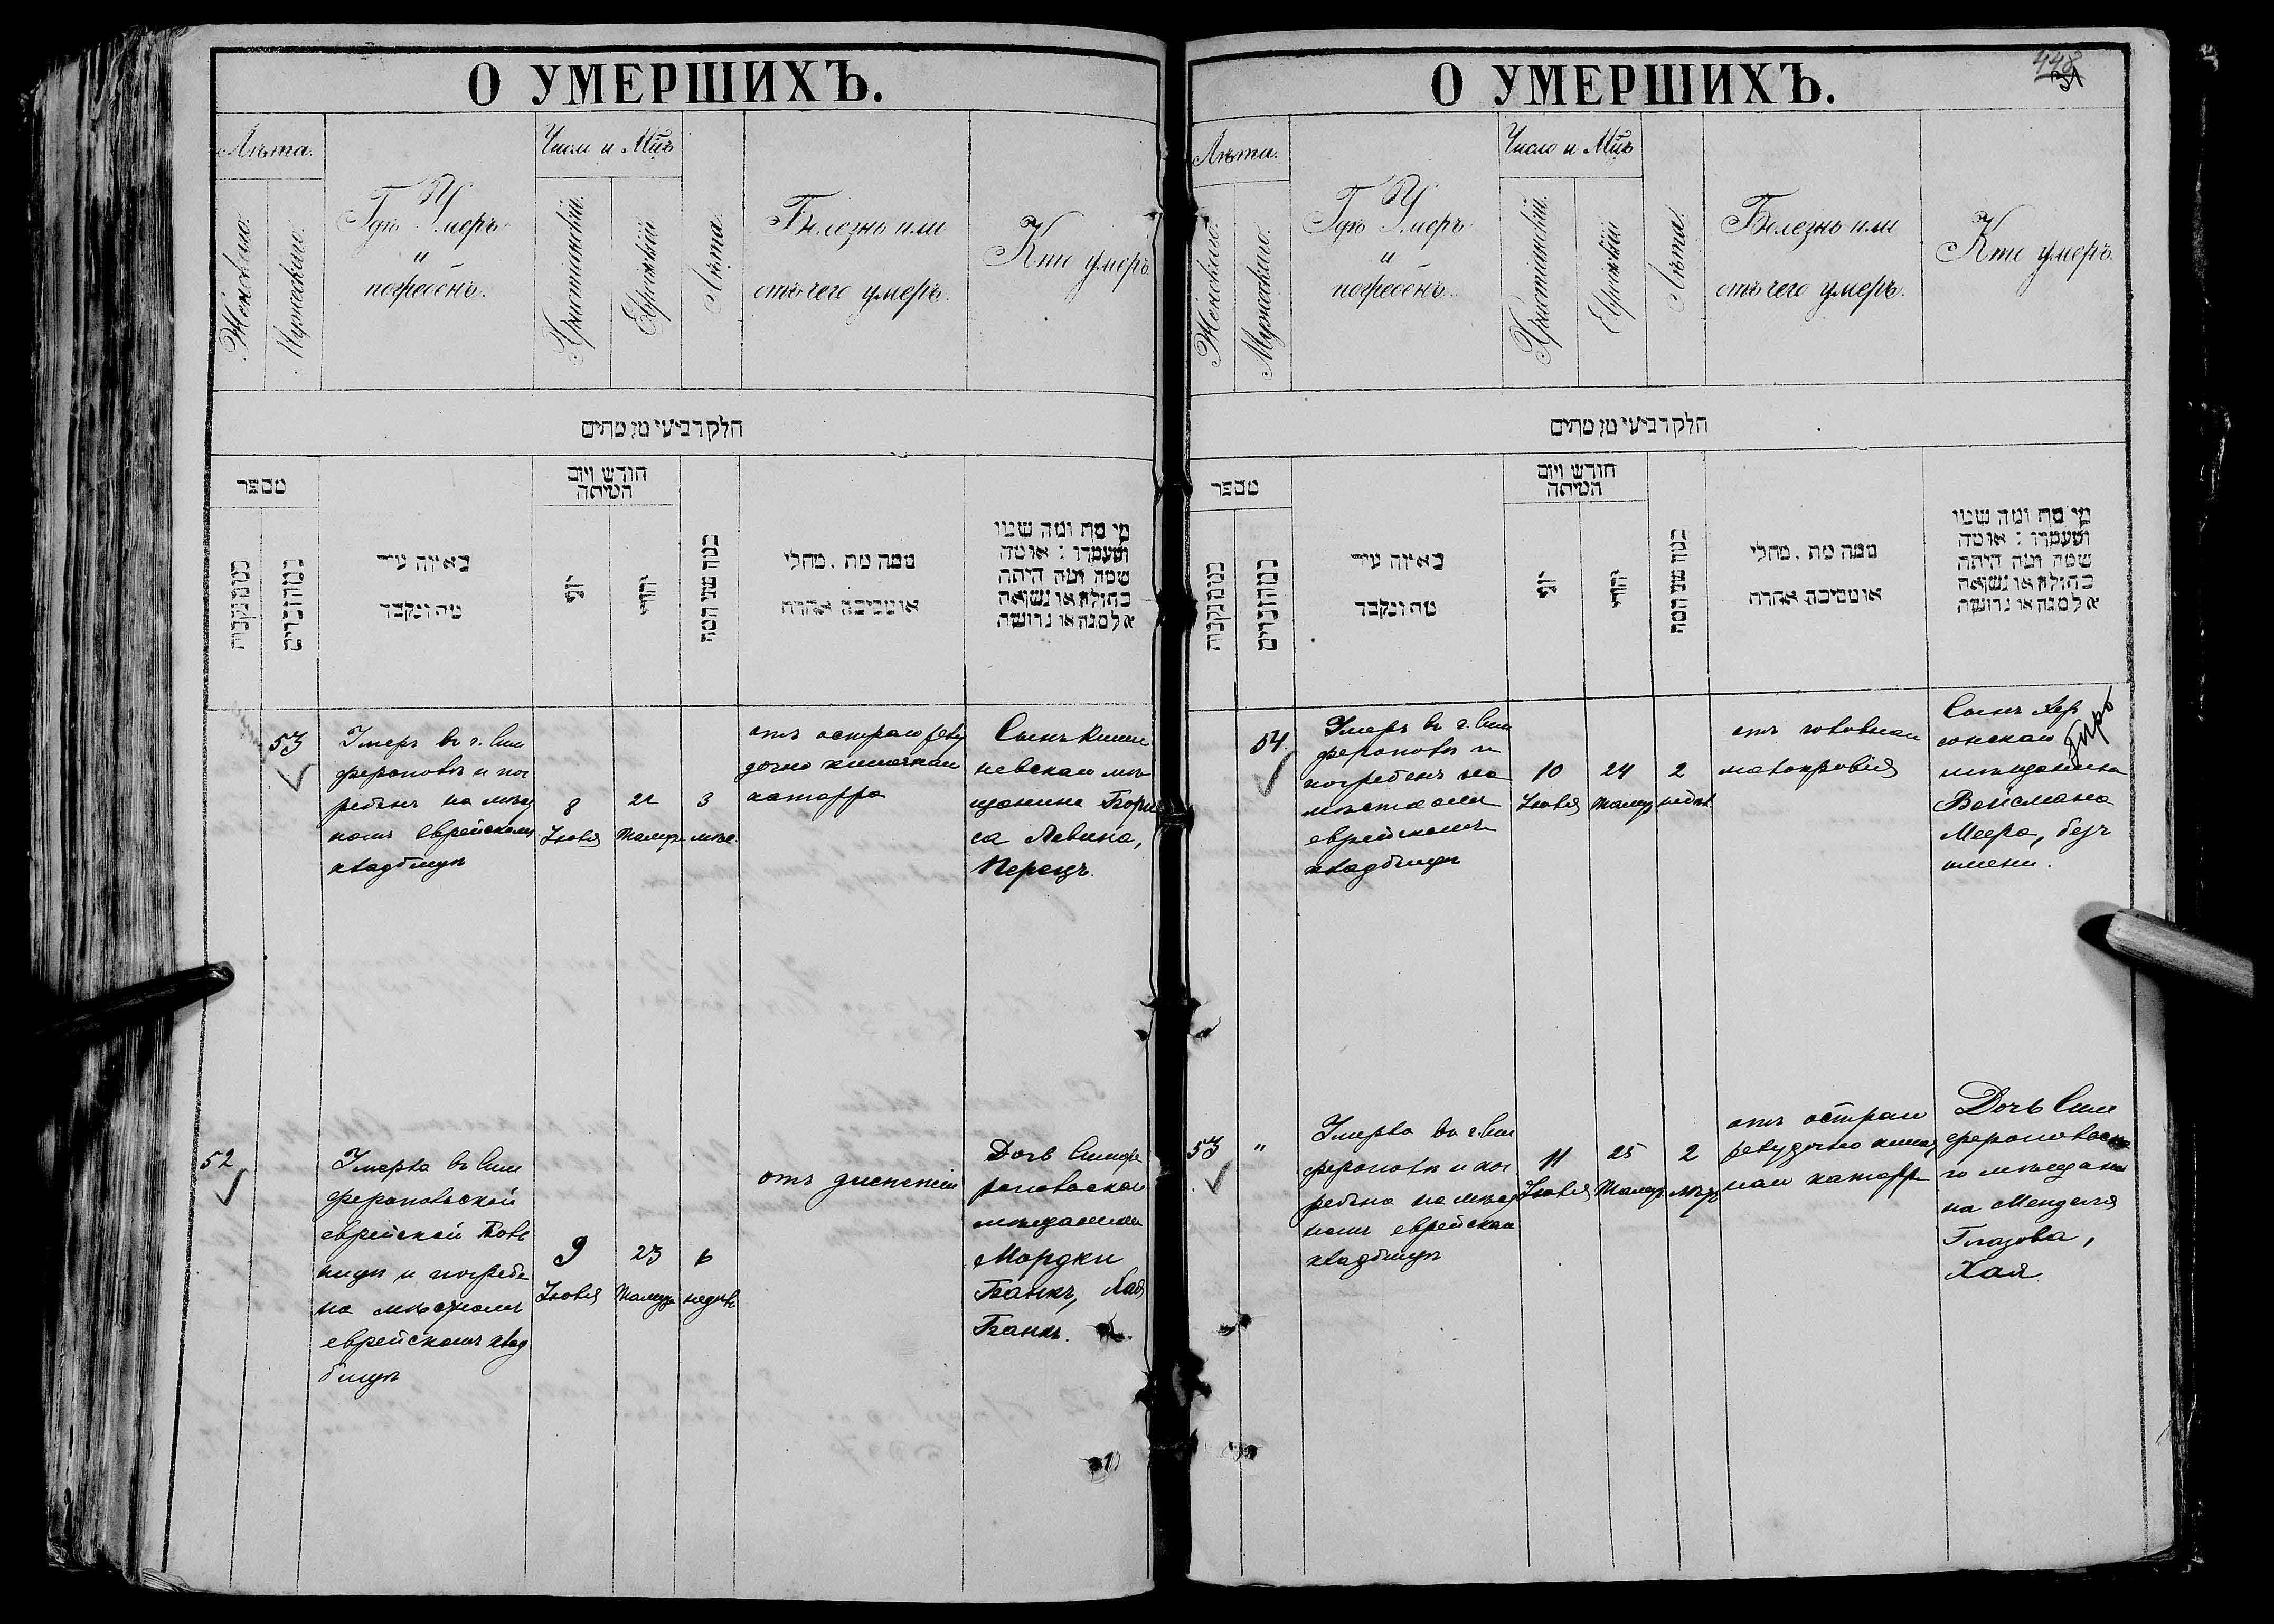 О УМЕРШИХЪ.
Лѣта.
Женскаго.
Мужескаго.
Гдѣ Умеръ
и
погребенъ.
Число и Мцъ
Христіанскій.
Еврейскій
Лѣта.
Болезнь или
отъ чего умеръ.
Кто умеръ
חלק רביעי מן מתים
מספר
במה נקבות
במה זכרים
באיזה עיר
מת ונקבר
חודש ויום
המיתה
יוני
יהודי
כמה שני המת
ממה מת . מחלי
או מסיבה אחרת
מי מת ומה שמו
ומעמדו : או מה
שמה ומה היתה
בתולה או נשואה
אלמנה או גרושה
53
Умеръ въ г. Сим
ферополѣ и пог
ребенъ на мѣст
номъ Еврейскомъ
кладбищѣ
8
Іюля
22
Тамуз
3
мѣс.
отъ остраго желу
дочно кишечнаго
катарра
Сынъ Киши
невскаго мѣ
щанина Бори
са Левина,
Перецъ.
52
Умерла въ Сим
феропольской
еврейской боль
ницѣ и погребе
на мѣстномъ
еврейскомъ клад
бищѣ
9
Іюля
23
Тамуз
6
недѣль
отъ диспепсіи
Дочь Симфе
ропольскаго
мѣщанина
Мордки
Банкъ,
Банкъ.
О УМЕРШИХЪ.
448
31
Лѣта.
Женскаго.
Мужескаго.
Гдѣ Умеръ
и
погребенъ.
Число и Мцъ
Христіанскій.
Еврейскій
Лѣта.
Болезнь или
отъ чего умеръ.
Кто умеръ.
חלק רביעי מן מתים
מספר
במה נקבות
במה זכרים
באיזה עיר
מת ונקבר
חודש ויום
המיתה
יוני
יהודי
כמה שני המת
ממה מת . מחלי
או מסיבה אחרת
מי מת ומה שמו
ומעמדו : או מה
שמה ומה היתה
בתולה או נשואה
אלמנה או גרושה
54.
Умеръ въ г. Сим
ферополѣ и
погребенъ на
мѣстномъ
еврейскомъ
кладбищѣ
10
Іюля
24
Тамуз
2
недѣл.
отъ головнаго
малокровія
Сынъ Хер
сонскаго
мѣщанина
Вейсмана
Меера, безъ
имени.
53
"
Умерла въ г. Сим
ферополѣ и пог
ребена на мѣст
номъ еврейском
кладбищѣ
11
Іюля
25
Тамуз
2
отъ остраго
желудочно кишеч
наго катарр
Дочь Сим
феропольска
го мѣщани
на Менделя
Глазова,
Хая.